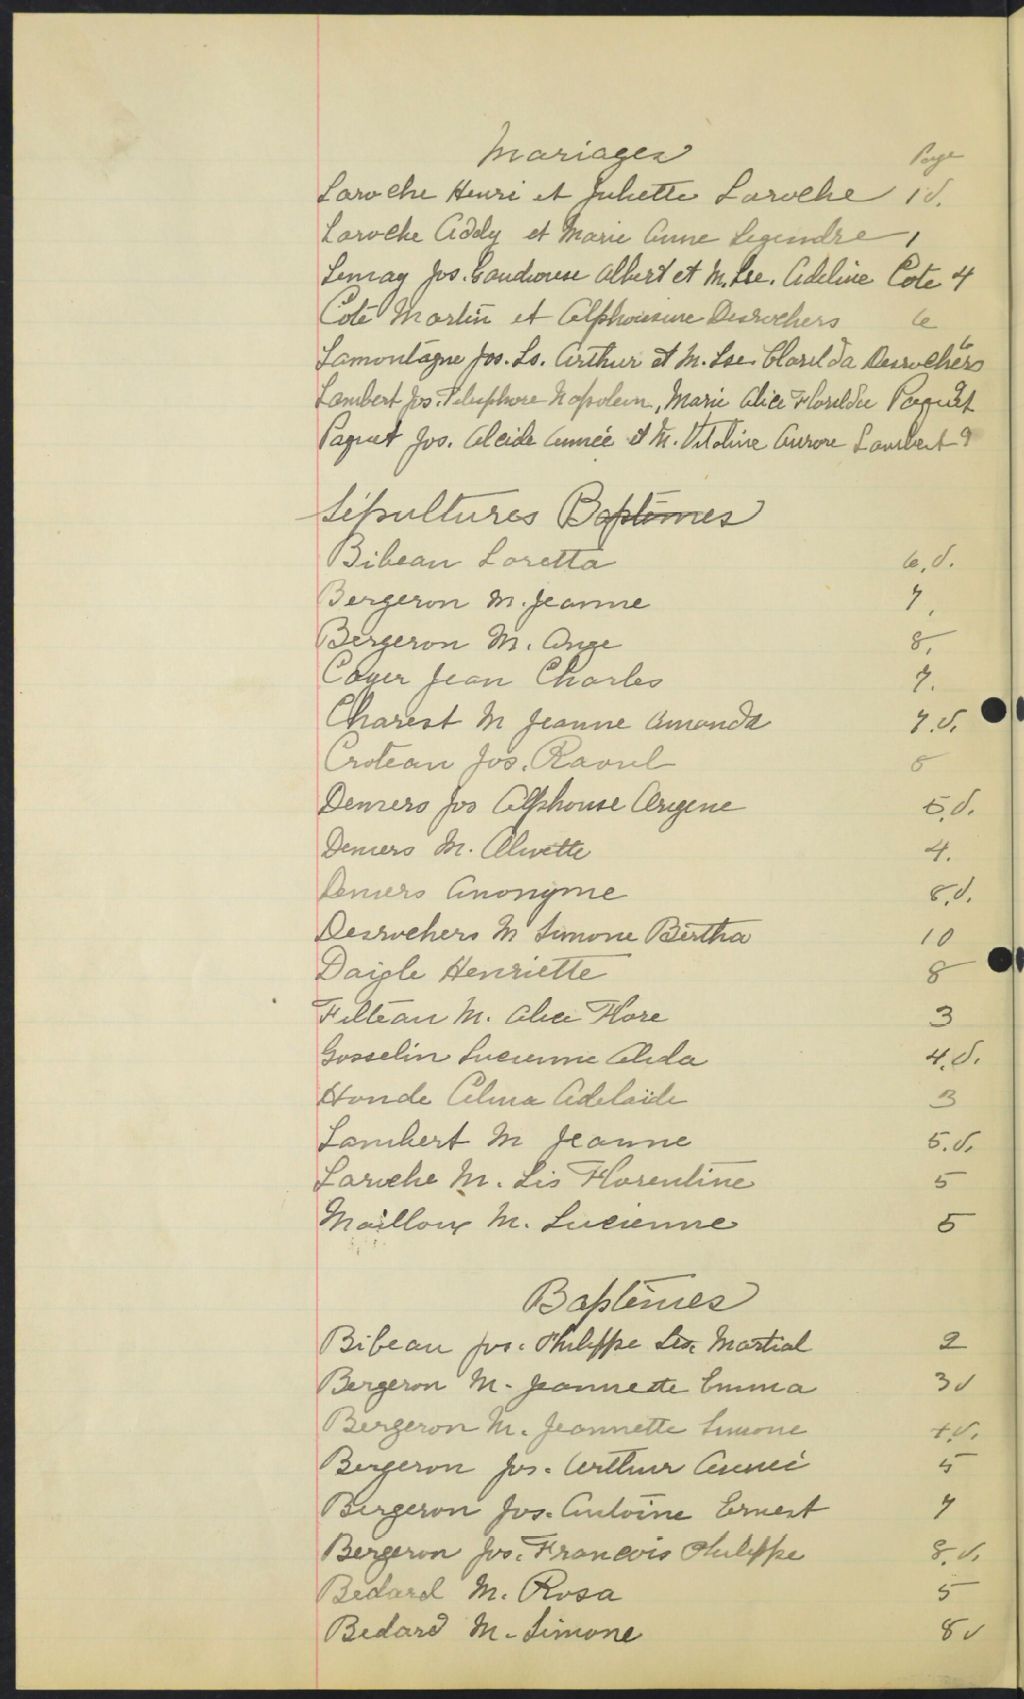 Mariages Page
Laroche Henri et Juliette Laroche 1 v.
Laroche Addy et Marie Anne Legendre 1
Lemay Jos. Albert et M. Lse. Adeline Cote 4
Coté Martin et Alphonsine Desrochers 6
Lamontagne Jos. Ls. Arthur et M. Lse. Clarilda Desrochers 6
Lambert Jos. Telesphore Napoleon, Marie Alice Florilda Paquet 9
Paquet Jos. Alcide Aimée et M. Vitaline Aurore Lambert 9
Sépultures Baptêmes
Bibeau Loretta 6. v.
Bergeron M. Jeanne 7.
Bergeron M. Ange 8.
Cayer Jean Charles 7.
Charest M Jeanne Amanda 7. v.
Croteau Jos. Raoul 5
Demers Jos Alphonse Arsene 5. v.
Demers M. Alivette 4.
Demers Anonyme 8. v.
Desrochers M Simone Bertha 10
Daigle Henriette 8
Filteau M. Alice Flore 3
Gosselin Lucienne Alida 4. v.
Houde Alma Adelaïde 3
Lambert M Jeanne 5. v.
Laroche M. Lis Florentine 5
Mailloux M. Lucienne 5
Baptêmes
Bibeau Jos. Philippe Martial 2
Bergeron M. Jeannette Emma 3 v
Bergeron M. Jeannette Simone 4. v.
Bergeron Jos. Arthur Aimé 5
Bergeron Jos. Antoine Ernest 7
Bergeron Jos. Francois Philippe 8. v.
Bedard M. Rosa 5
Bedard M. Simone 8 v